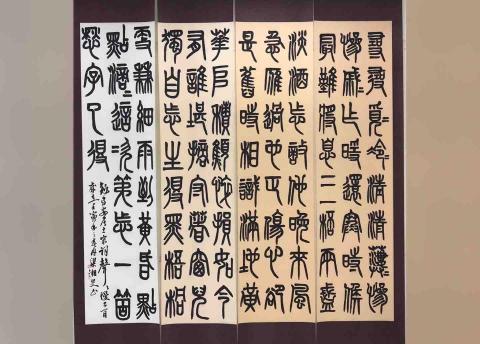 尋尋覓覓冷冷清清淒淒慘
慘戚戚乍暖還寒時候
最難將息三杯兩盞
淡酒怎敵他晚來風
急雁過也正傷心卻
是舊時相識滿地黃
花堆積顦顇損如今
有誰堪摘守著窗兒
獨自怎生得黑梧桐
更兼細雨到黃昏點
點滴滴這次第怎一個
愁字了得